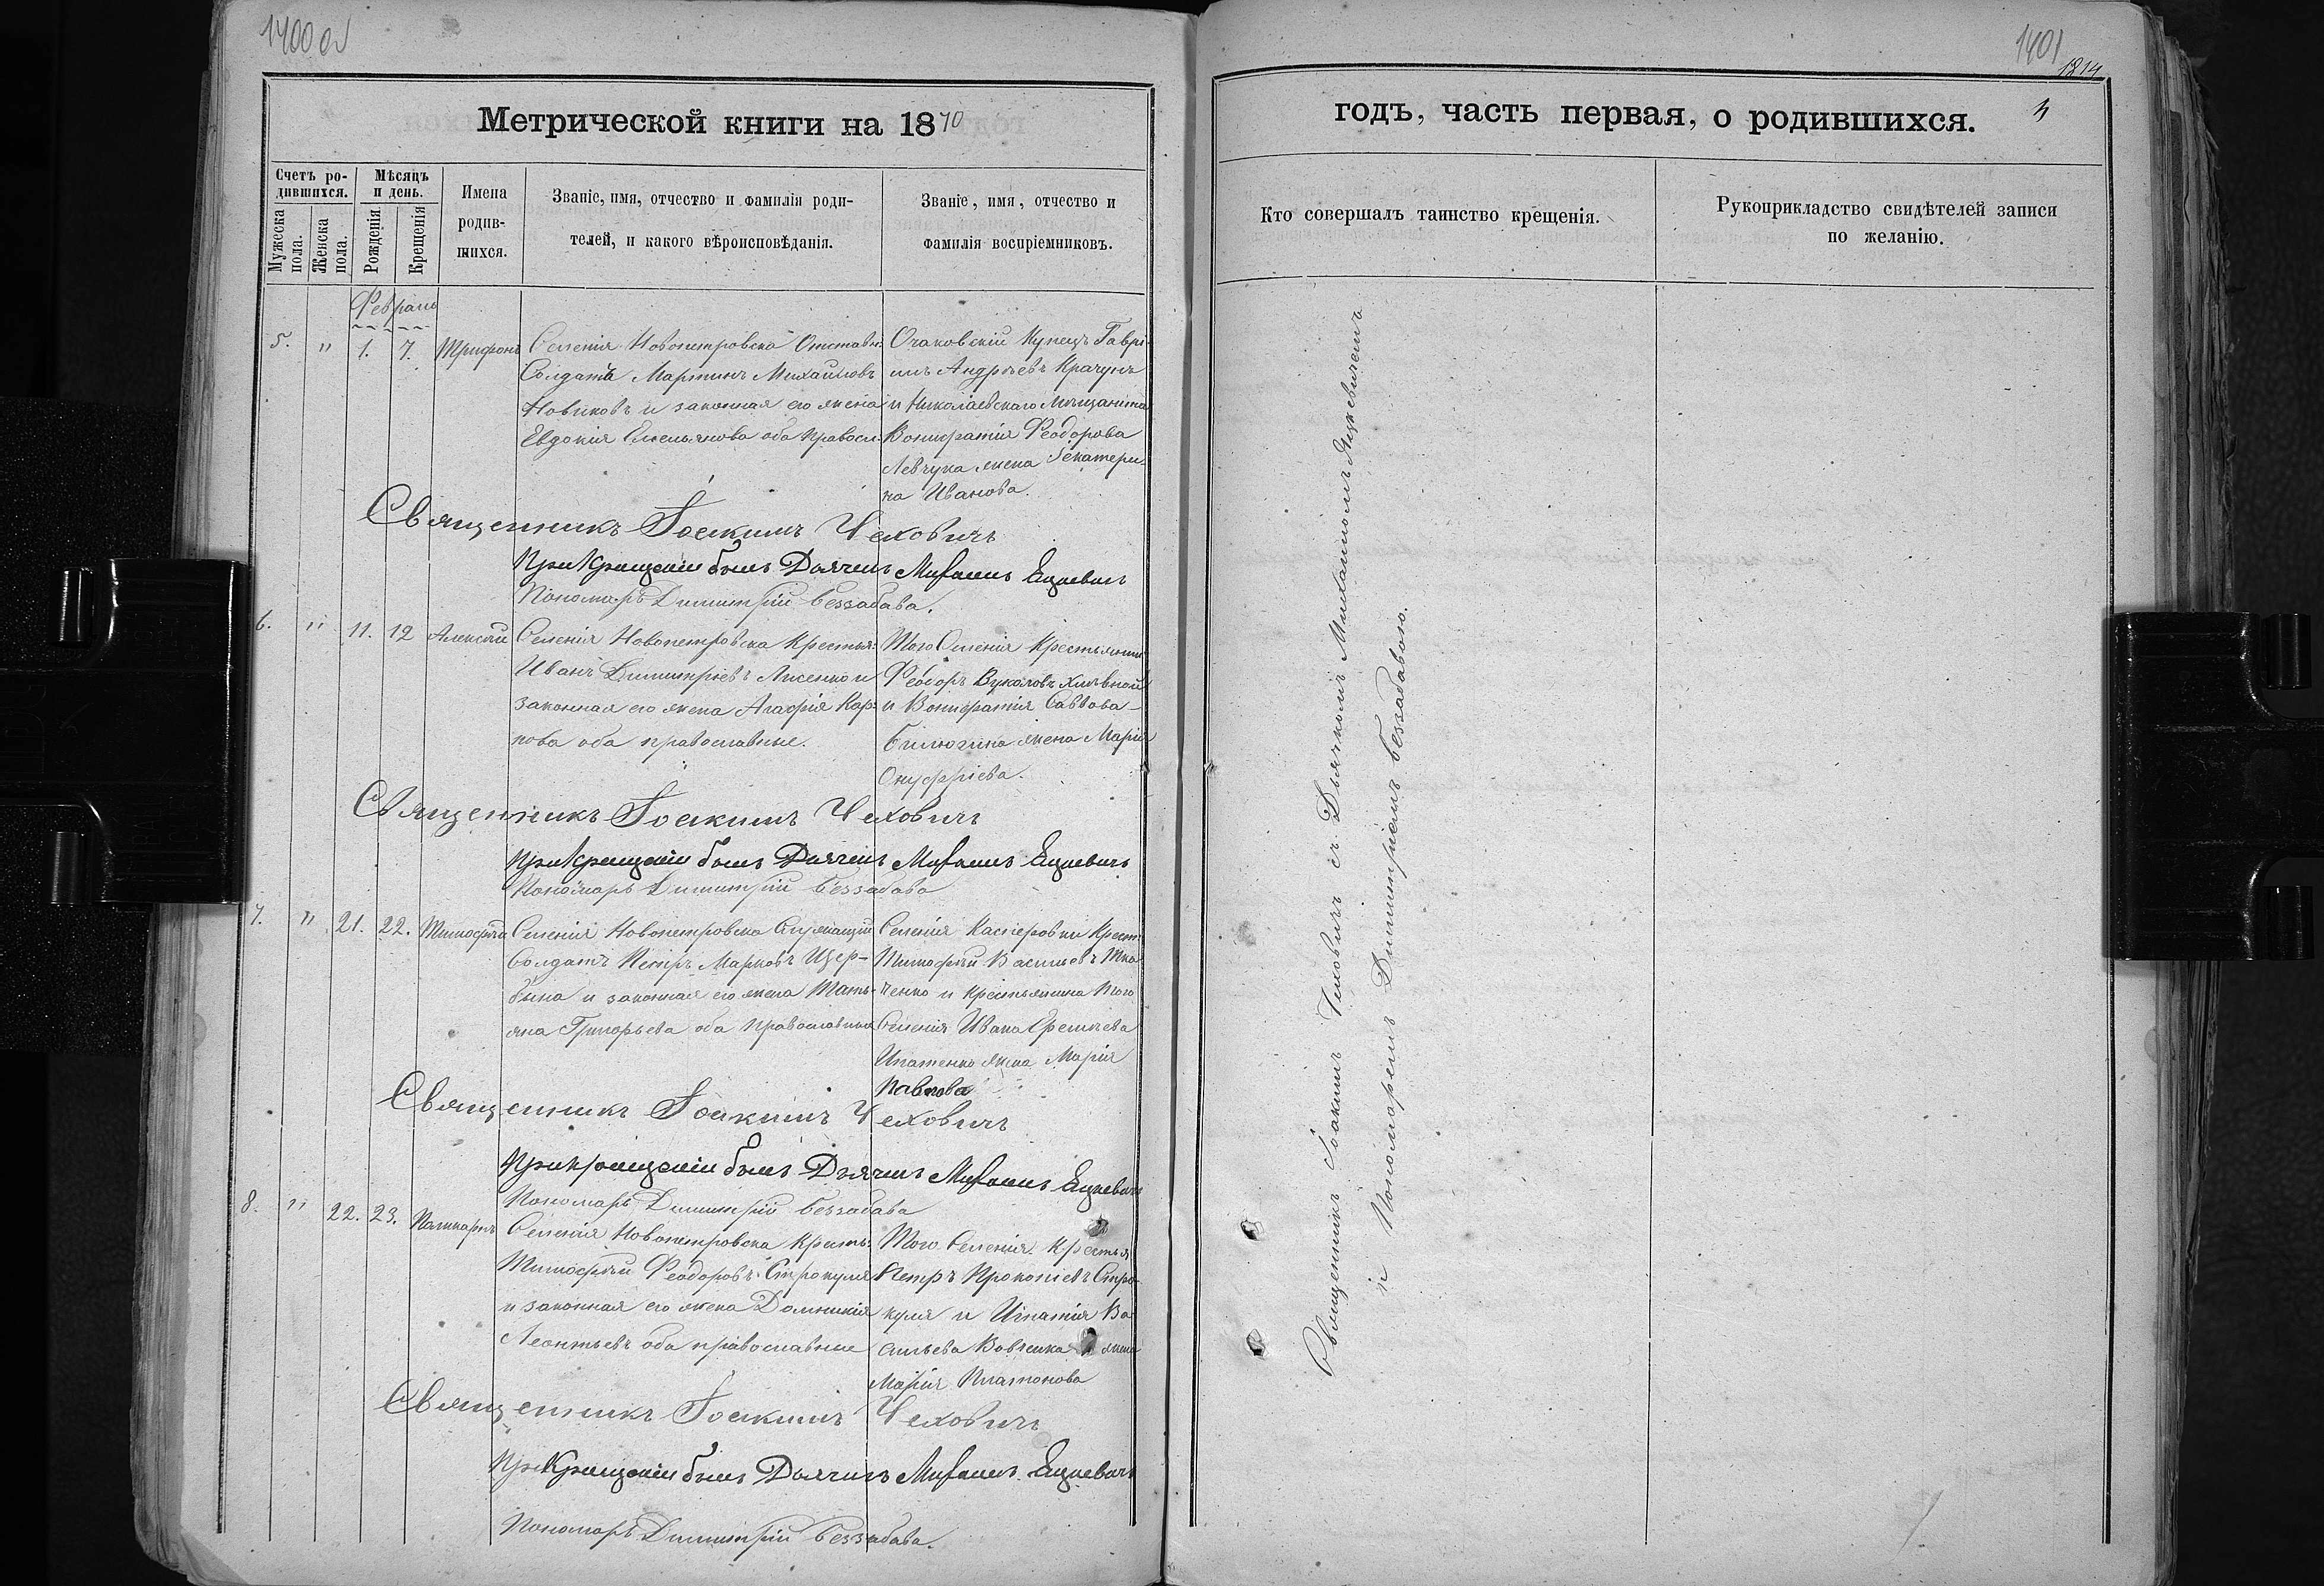 1400 об
Метрической книги на 1870
Счетъ ро-
дившихся.
Мѣсяцъ
и день.
Мужеска
пола.
Женска
пола.
Рожденія
Крещенія
Имена
родив-
шихся.
Званіе, имя, отчество и фамилія роди-
телей, и какого вѣроисповѣданія.
Званіе, имя, отчество и
фамилія воспріемниковъ.
Февраль
5. " 1. 7. Трифонъ
Селенія Новопетровска Отставн:
Солдатъ Мартинъ Михайловъ
Новиковъ и законная его жена
Евдокія Емельянова оба правосл.
Очаковскій Купецъ Гаврі-
илъ Андреевъ Крачунъ
и Николаевскаго Мѣщанина
Вонифатія Феодорова
Левчука жена Екатери-
на Иванова.
Священникъ Іоакимъ Чеховичъ
При Крещеніи былъ Дьячекъ Михаилъ Яцкевичъ
Пономарь Димитрій Беззабава.
6. " 11. 12 Алексѣй
Селенія Новопетровска Крестья:
Иванъ Димитріевъ Лисенко и
законная его жена Агафія Кар-
пова оба православные.
Того Селенія Крестьянинъ
Феодоръ Вуколовъ
и Вонифатія Саввова
жена Марія
Онуфріева.
Священникъ Іоакимъ Чеховичъ
При Крещеніи былъ Дьячекъ Михаилъ Яцкевичъ
Пономарь Димитрій Беззабава
7. " 21. 22. Тимофѣй
Селенія Новопетровска Служащій
Солдатъ Петръ Марковъ Щер-
бина и законная его жена Тать-
яна Григорьева оба православные
Селенія Касперовки Крест:
Тимофѣй Васильевъ Тка-
ченко и крестьянина того
Селенія Ивана
Игнатенко жена Марія
Павлова
Священникъ Іоакимъ Чеховичъ
При крещеніи былъ Дьячекъ Михаилъ Яцкевичъ
Пономарь Димитрій Беззабава
8. " 22. 23.
Селенія Новопетровска Кресть:
Тимофѣй Феодоровъ Строкуля
и законная его жена Домникія
Леонтьевъ оба православные
Того Селенія Крестья
Петръ Прокопіевъ Стро-
куля и Игнатія Ва-
сильева Вовченка жена
Марія Платонова
Священникъ Іоакимъ Чеховичъ
При Крещеніи былъ Дьячекъ Михаилъ Яцкевичъ
Пономарь Димитрій Беззабава.
1401
1214
годъ, часть первая, о родившихся.
Кто совершалъ таинство крещенія.
Рукоприкладство свидѣтелей записи
по желанію.
Священникъ Іоакимъ Чеховичъ съ Дьячкомъ Михаиломъ Яцкевичемъ
и Пономаремъ Димитріемъ Беззабавою.